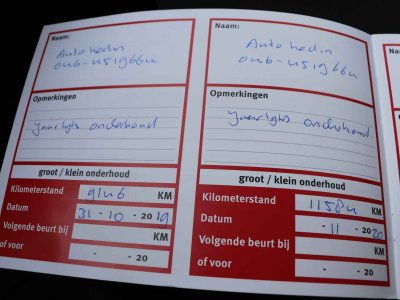 Naam:
Auto hedin
046-4519664
Opmerkingen
Jaarlijks onderhoud
groot / klein onderhoud
Kilometerstand 9146 KM
Datum 31 - 10 - 2019
Volgende beurt bij KM
of voor - - 20
Naam:
Auto hedin
046-4519664
Opmerkingen
Jaarlijks onderhoud
groot / klein onderhoud
Kilometerstand 11584 KM
Datum - 11 - 2020
Volgende beurt bij KM
of voor - - 20